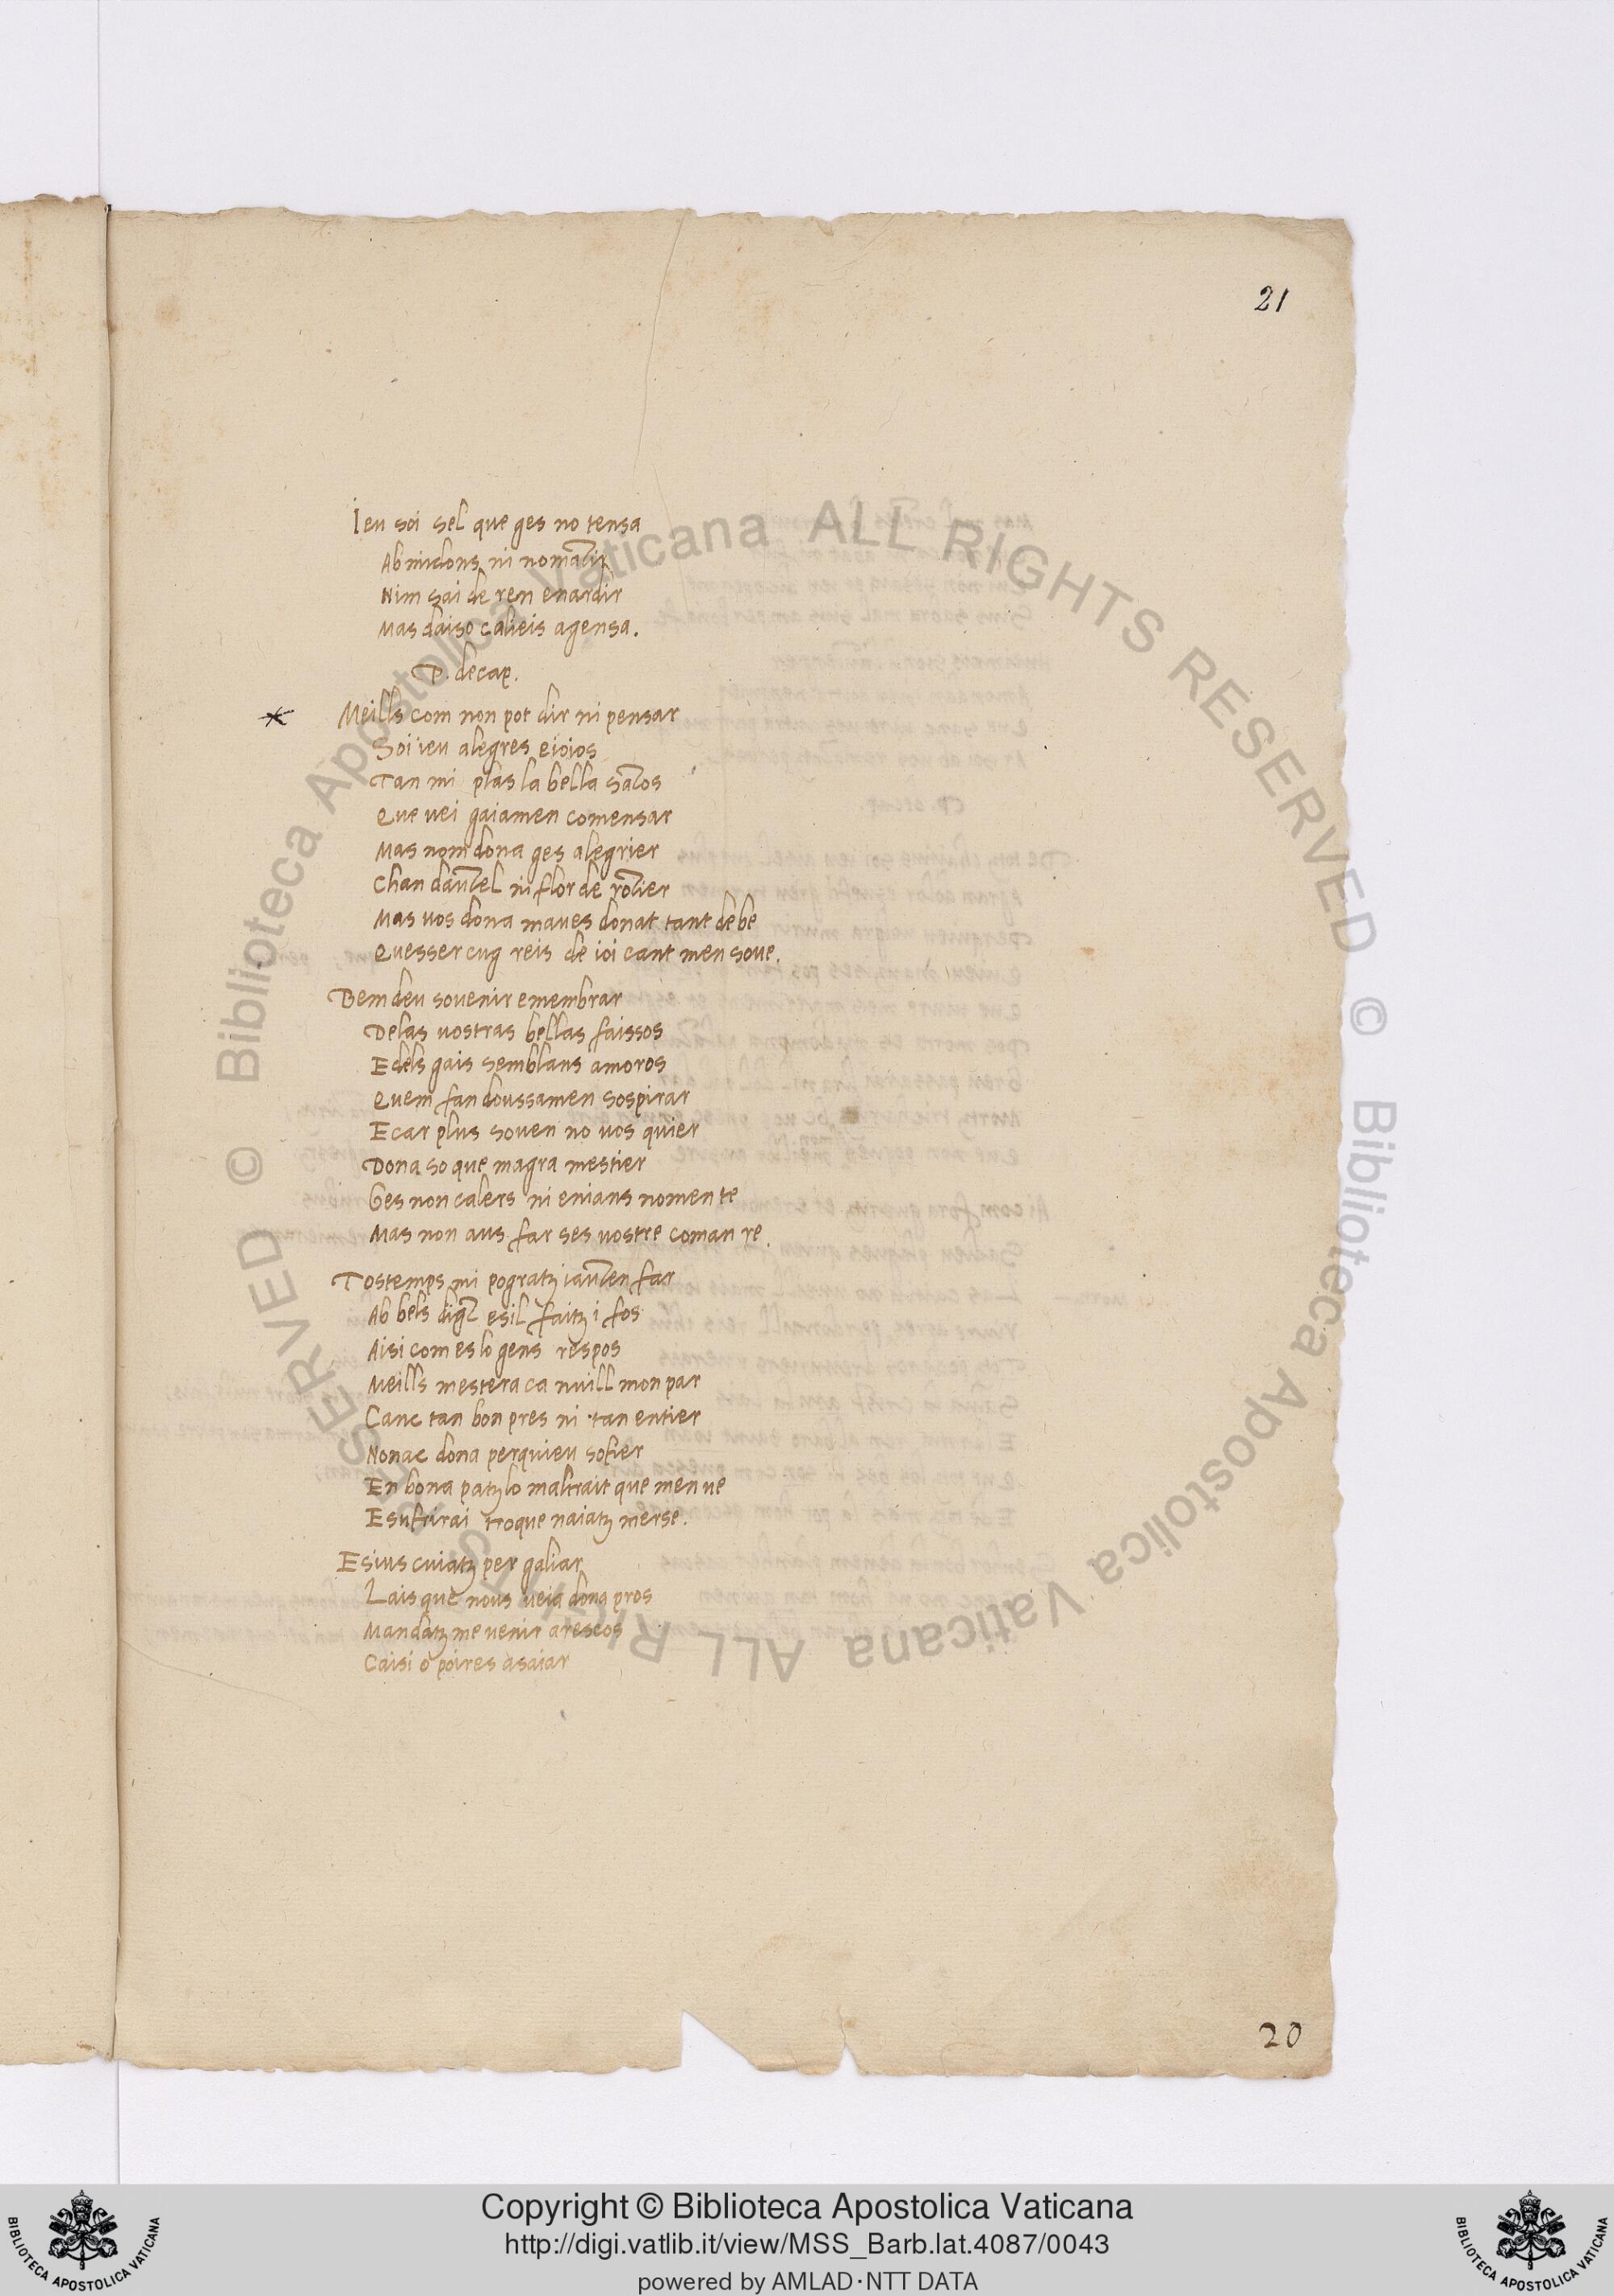 21
Ieu soi sel que ges no tensa
Ab midons ni nomatir
Nim sai de ren enardir
Mas daiso calieis agensa.
P. decap.
* Meills com non pot dir ni pensar
Soi ieu alegres eioios
Tan mi plas la bella
Que vei gaiamen comensar
Mas nom dona ges alegrier
Chan dauzel ni flor de
Mas vos dona maves donat tant de be
Quesser cug reis de ioi cant men sove.
Bem deu sovenir emembrar
Delas vostras bellas faissos
E dels gais semblans amoros
Quem fan doussamen sospirar
E car plus soven no vos quier
Dona so que magra mestier
Ges non calers ni enians nomen te
Mas non aus far ses vostre coman re.
Tostemps mi pogratz iauzen far
Ab bels digz esil faitz i fos
Aisi com es lo gens respos
Meills mestera ca nuill mon par
Canc tan bon pres ni tan entier
Nonac dona perquieu sofier
En bona patz lo maltrait que men ve
E sufrirai tro que naiatz merse.
E sius cuiatz per galiar
Lais que nous veia dona pros
Mandatz me venir a rescos
Caisi o poires asaiar
20
© Biblioteca Apostolica Vaticana ALL RIGHTS RESERVED © Biblioteca Apostolica Vaticana ALL RIGHTS RESERVED
Copyright © Biblioteca Apostolica Vaticana
http://digi.vatlib.it/view/MSS_Barb.lat.4087/0043
powered by AMLAD·NTT DATA
BIBLIOTECA APOSTOLICA VATICANA
BIBLIOTECA APOSTOLICA VATICANA